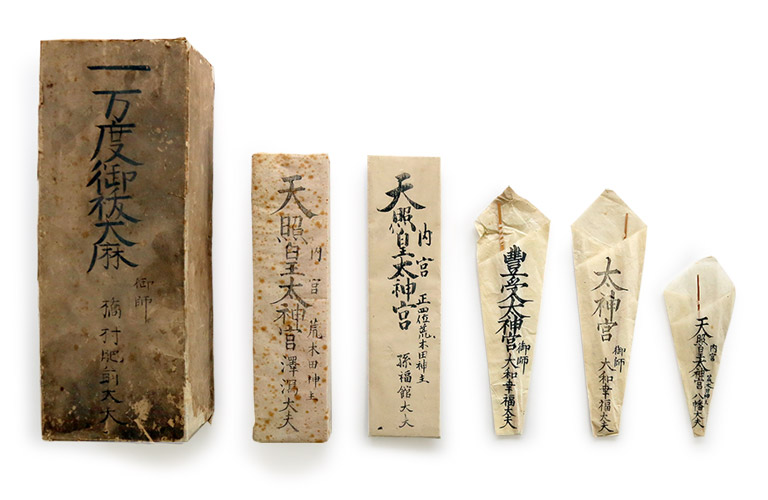 一万度御祓大麻
御師
橋村肥前大夫
内宮 荒木田神主
天照皇太神宮 澤瀉大夫
内宮 正四位荒木田神主
天照皇太神宮 孫福館大夫
豐受太神宮
御師
大和幸福太夫
太神宮
御師
大和幸福太夫
内宮 荒木田神主
天照皇太神宮 八幡大夫